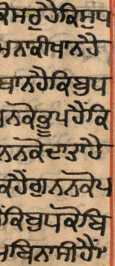 ਕੇਸਰੂਹੈਕਿਸੁਧ
ਮਨਾਕੀਖਾਨਹੈ
ਬਾਨਹੈਕਿਬੁਧ
ਨਕੋਭੂਪਹੈਂਕਿ
ਨਨਕੋਦਾਤਾਹੈ
ਕਹੈਂਗੁਨਨਕੋਪ
ਕਿਬੁਧਕੋਬਿ
ਅਬਿਨਾਸੀਹੈਂ